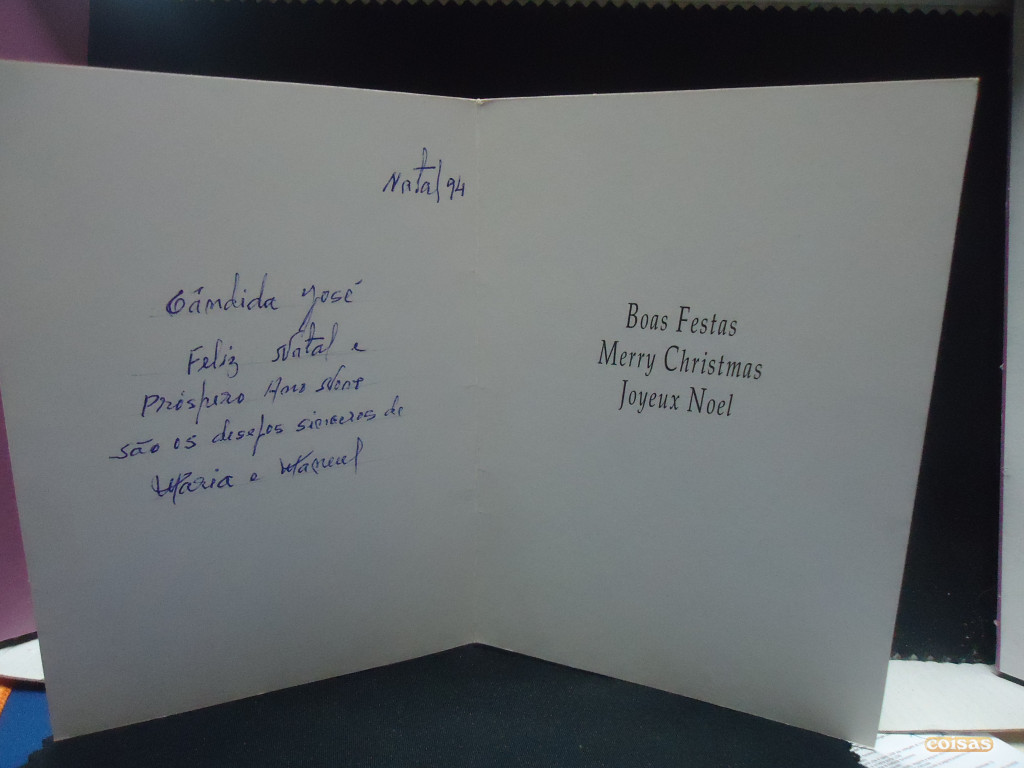 Natal 94
Cândida José
Feliz Natal e
Próspero Ano Novo
são os desejos sinceros de
Maria e Manuel
Boas Festas
Merry Christmas
Joyeux Noel
coisas